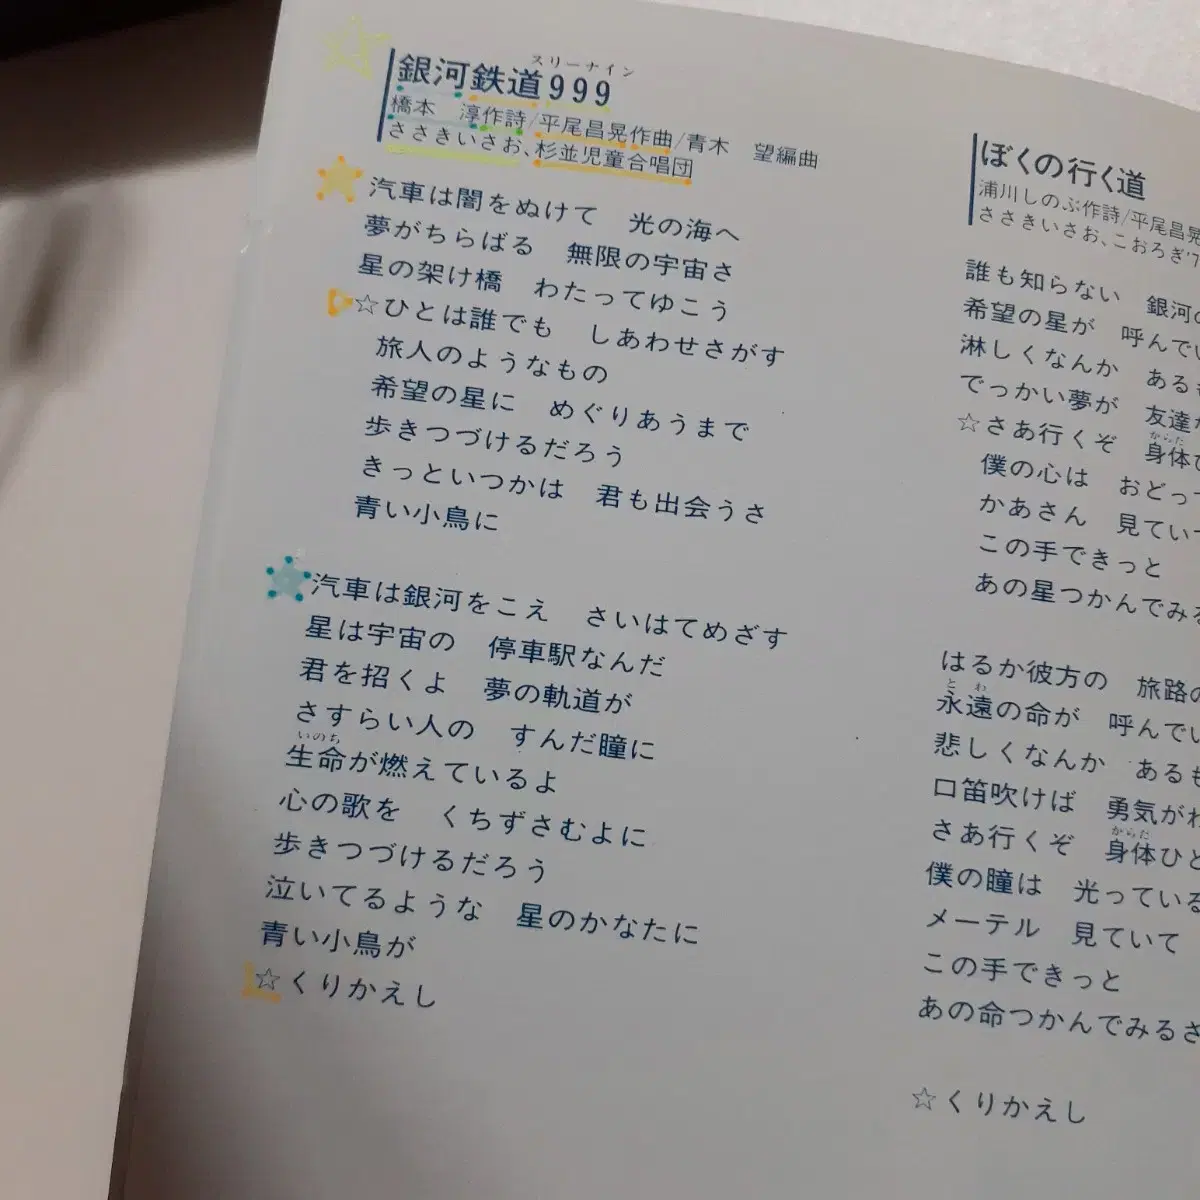 スリーナイン
銀河鉄道999
橋本 淳作詩/平尾昌晃作曲/青木 望編曲
ささきいさお、杉並児童合唱団
汽車は闇をぬけて 光の海へ
夢がちらばる 無限の宇宙さ
星の架け橋 わたってゆこう
☆ひとは誰でも しあわせさがす
旅人のようなもの
希望の星に めぐりあうまで
歩きつづけるだろう
きっといつかは 君も出会うさ
青い小鳥に
汽車は銀河をこえ さいはてめざす
星は宇宙の 停車駅なんだ
君を招くよ 夢の軌道が
さすらい人の すんだ瞳に
いのち
生命が燃えているよ
心の歌を くちずさむよに
歩きつづけるだろう
泣いてるような 星のかなたに
青い小鳥が
☆くりかえし
ぼくの行く道
浦川しのぶ作詩/平尾昌晃
ささきいさお、こおろぎ'7
誰も知らない 銀河の
希望の星が 呼んでい
淋しくなんか あるも
でっかい夢が 友達
からだ
☆さあ行くぞ 身体ひ
僕の心は おどっ
かあさん 見てい
この手できっと
あの星つかんでみる
はるか彼方の 旅路の
とわ
永遠の命が 呼んでい
悲しくなんか あるも
口笛吹けば 勇気がわ
からだ
さあ行くぞ 身体ひと
僕の瞳は 光っている
メーテル 見ていて
この手できっと
あの命つかんでみるさ
☆くりかえし